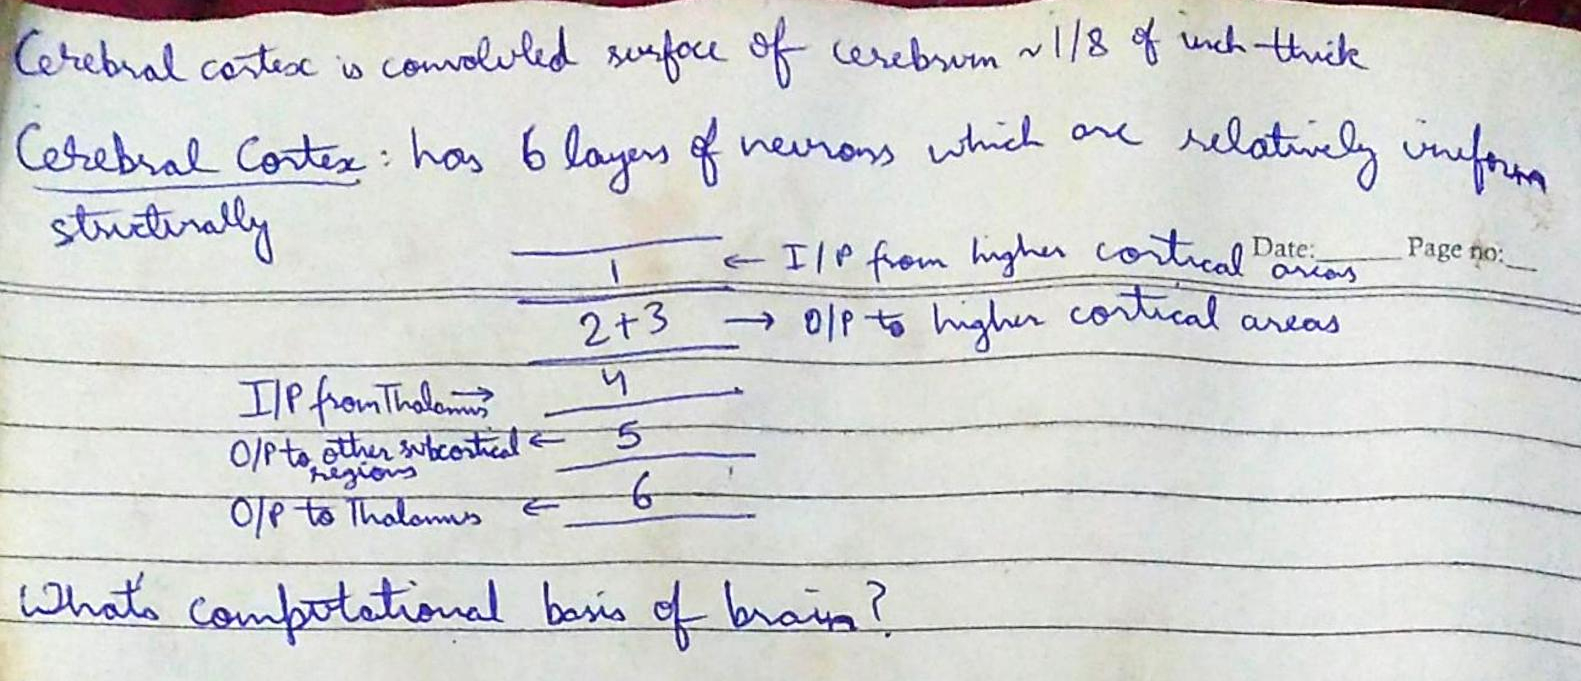 Cerebral cortex is convoluted surface of cerebrum ~1/8 of inch thick
Cerebral Cortex: has 6 layers of neurons which are relatively uniform
structurally
Date:____ Page no:__
1 ← I/P from higher cortical areas
2+3 → O/P to higher cortical areas
I/P from Thalamus → 4
O/P to other subcortical regions ← 5
O/P to Thalamus ← 6
What's computational basis of brain?